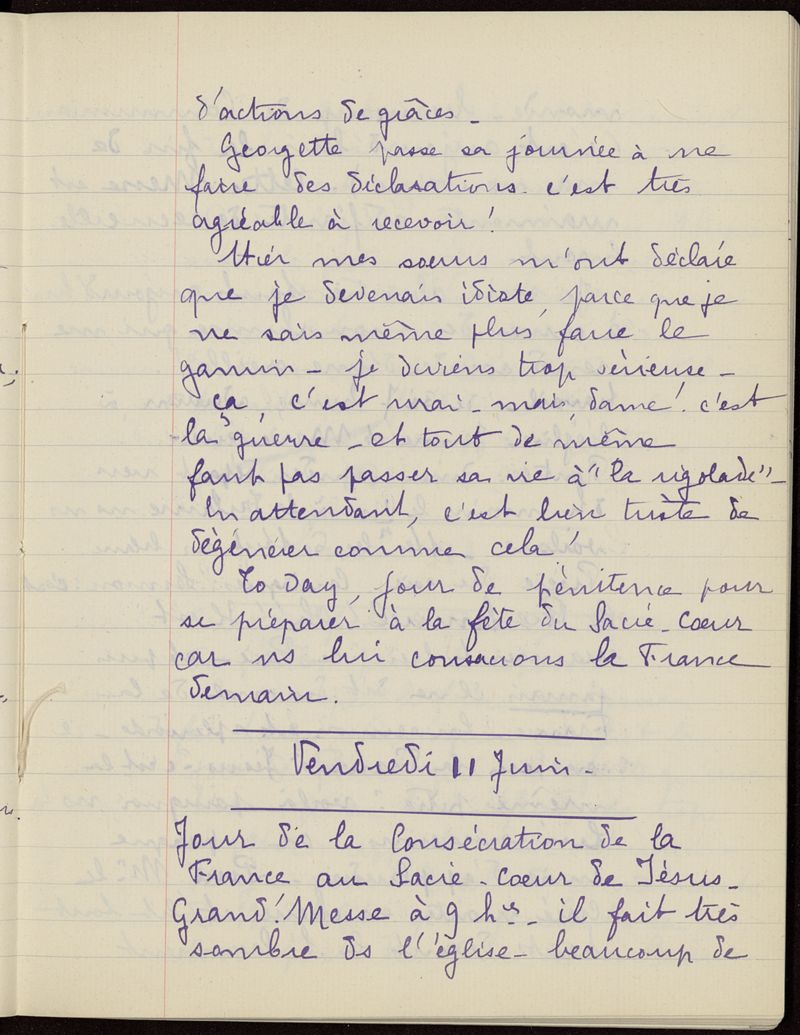 d'actions de grâces -
Georgette passe sa journée à me
faire des déclarations. c'est très
agréable à recevoir !
Hier mes sœurs m'ont déclaré
que je devenais idiote, parce que je
ne sais même plus faire le
gamin - je deviens trop sérieuse -
ça, c'est vrai - mais, dame ! c'est
la guerre - et tout de même
faut pas passer sa vie à "la rigolade" -
En attendant, c'est bien triste de
dégénérer comme cela !
To Day, jour de pénitence pour
se préparer à la fête du Sacré-Cœur
car ns lui consacrons la France
demain.
Vendredi 11 Juin -
Jour de la Consécration de la
France au Sacré-Cœur de Jésus -
Grand'Messe à 9 hres - il fait très
sombre ds l'église - beaucoup de